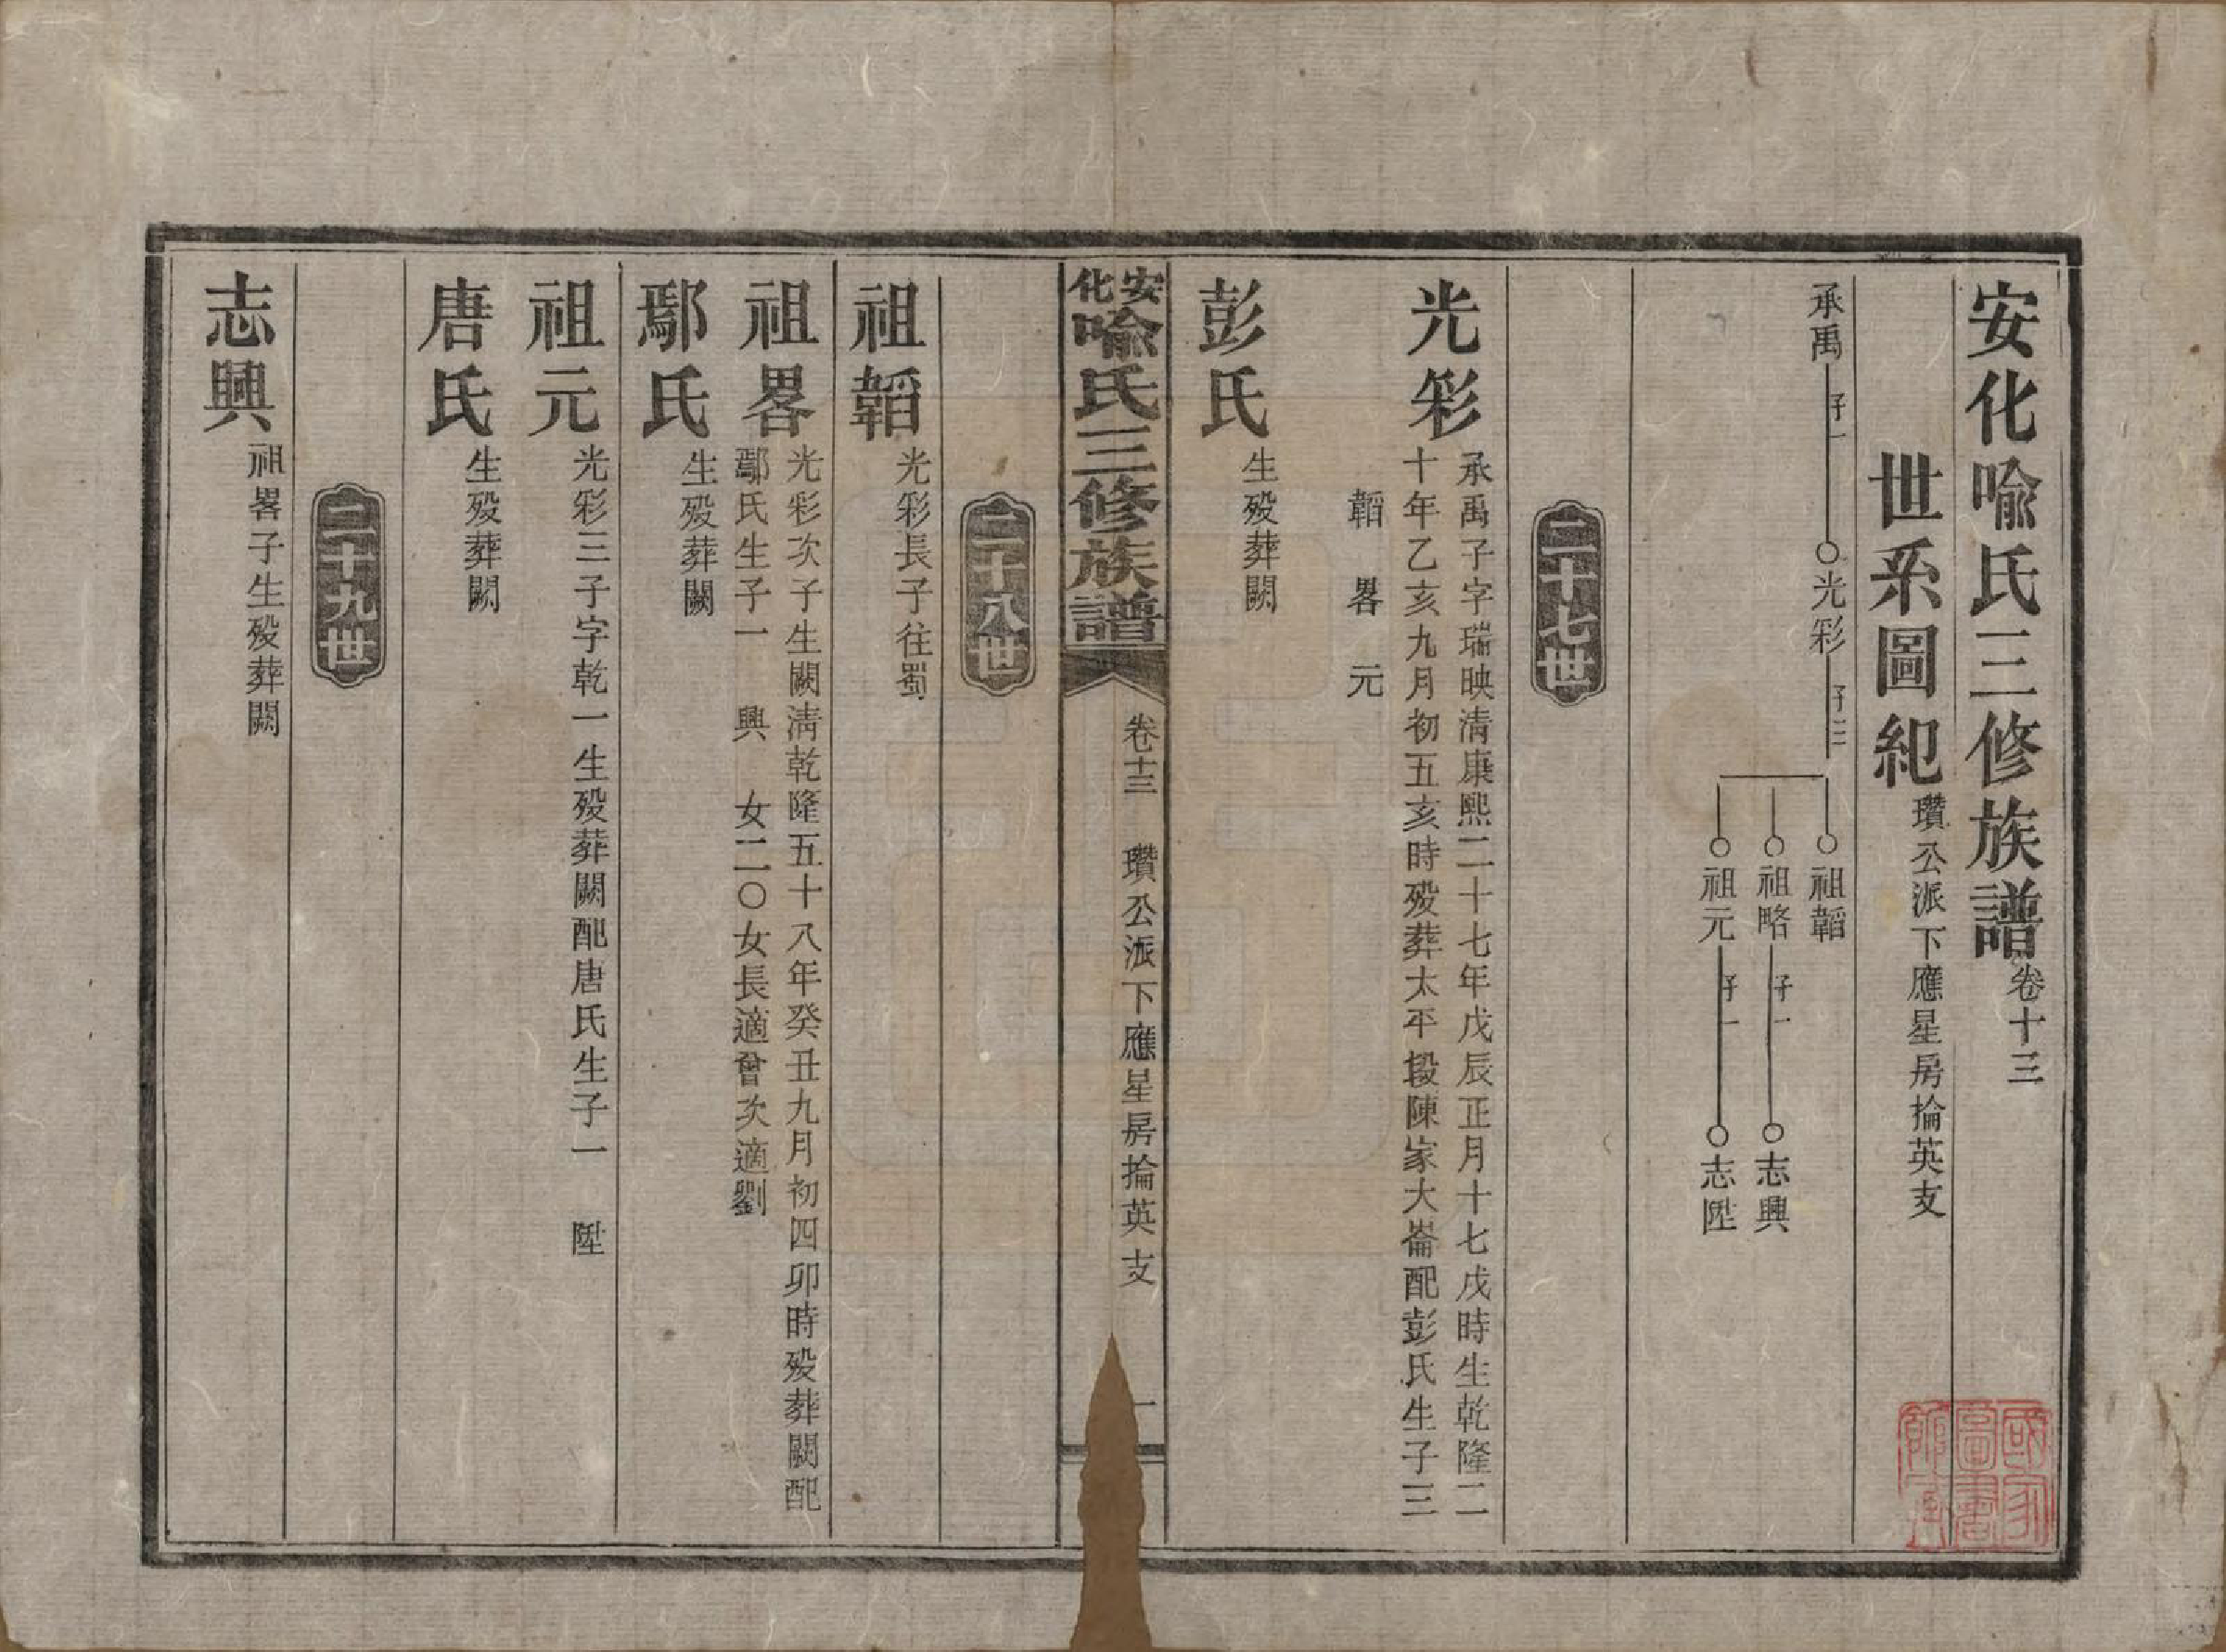 安化喩氏三修族譜卷十三
世系圖紀瓚公派下應星房掄英支
承禹 子一 光彩 子三
祖韜
祖略 子一 志興
祖元 子一 志陞
二十七世
光彩
承禹子字瑞映清康熙二十七年戊辰正月十七戌時生乾隆二
十年乙亥九月初五亥時殁葬太平段陳家大崙配彭氏生子三
韜 畧 元
彭氏 生殁葬闕
安化喩氏三修族譜 卷十三 瓚公派下應星房掄英支 一
二十八世
祖韜 光彩長子往蜀
祖畧
光彩次子生闕清乾隆五十八年癸丑九月初四卯時殁葬闕配
鄢氏生子一 興 女二〇女長適曾次適劉
鄢氏 生殁葬闕
祖元 光彩三子字乾一生殁葬闕配唐氏生子一 陞
唐氏 生殁葬闕
二十九世
志興 祖畧子生殁葬闕
國家圖書館藏